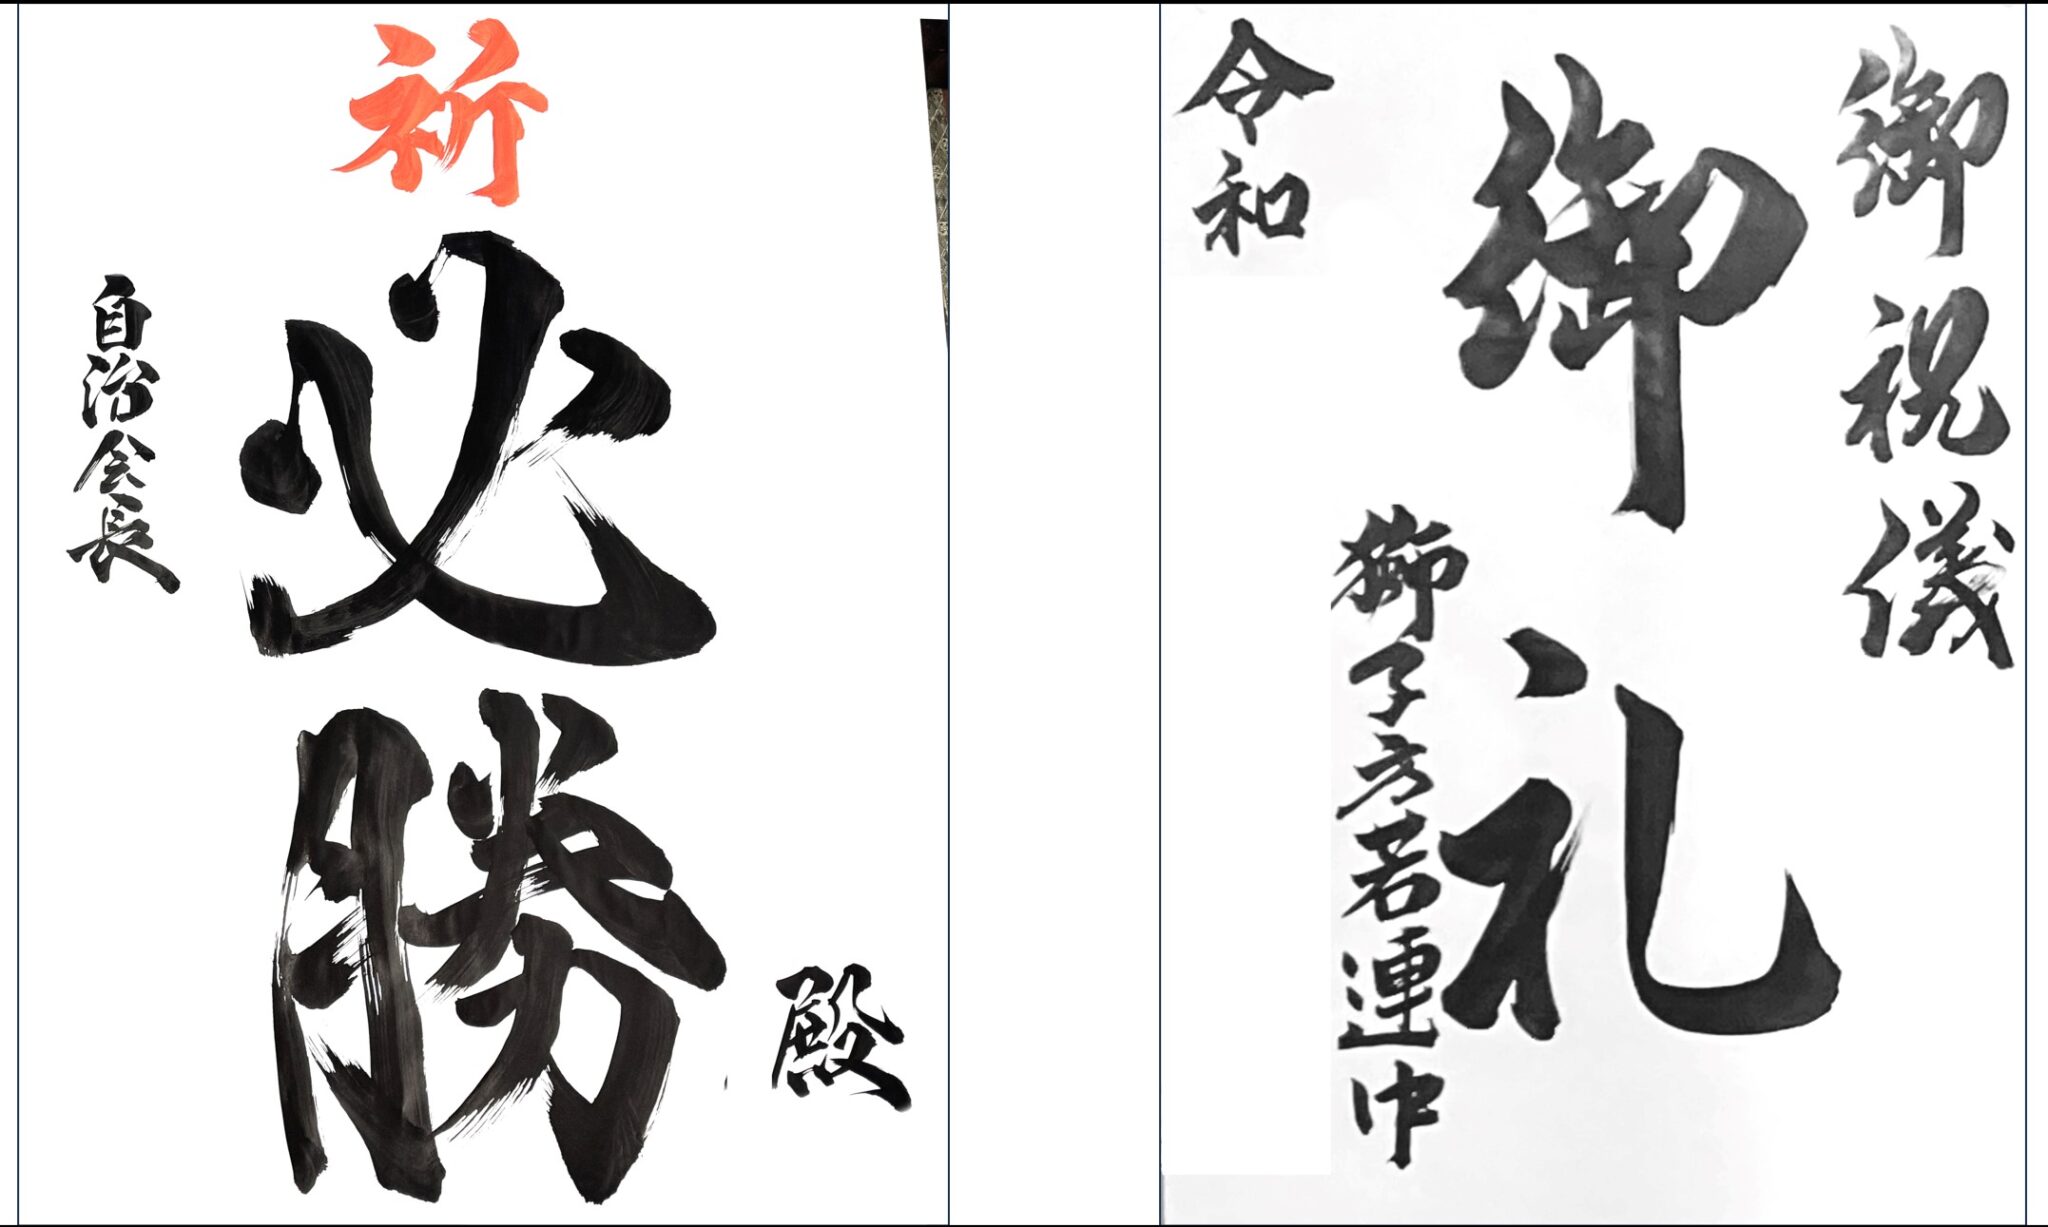 祈
必勝
殿
自治会長
御祝儀
御礼
獅子方若連中
令和